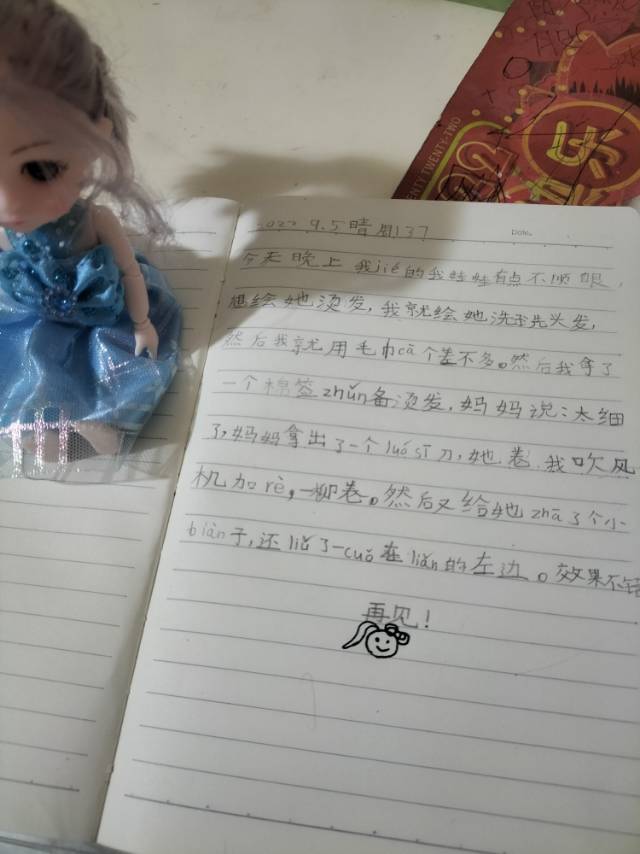 TWENTY TWENTY-TWO
22
乐
Date.
2022 9.5 晴 周1 37
今天晚上我jué的我娃娃有点不顺眼,
想给她烫发,我就给她洗洗头发,
然后我就用毛巾cā个差不多。然后我拿了
一个棉签zhǔn备烫发,妈妈说:太细
了,妈妈拿出了一个luó sī刀,她卷.我吹风
机加rè,一柳卷。然后又给她zhā了个小
biàn子,还liǔ了一cuō在liǎn的左边。效果不错
再见!